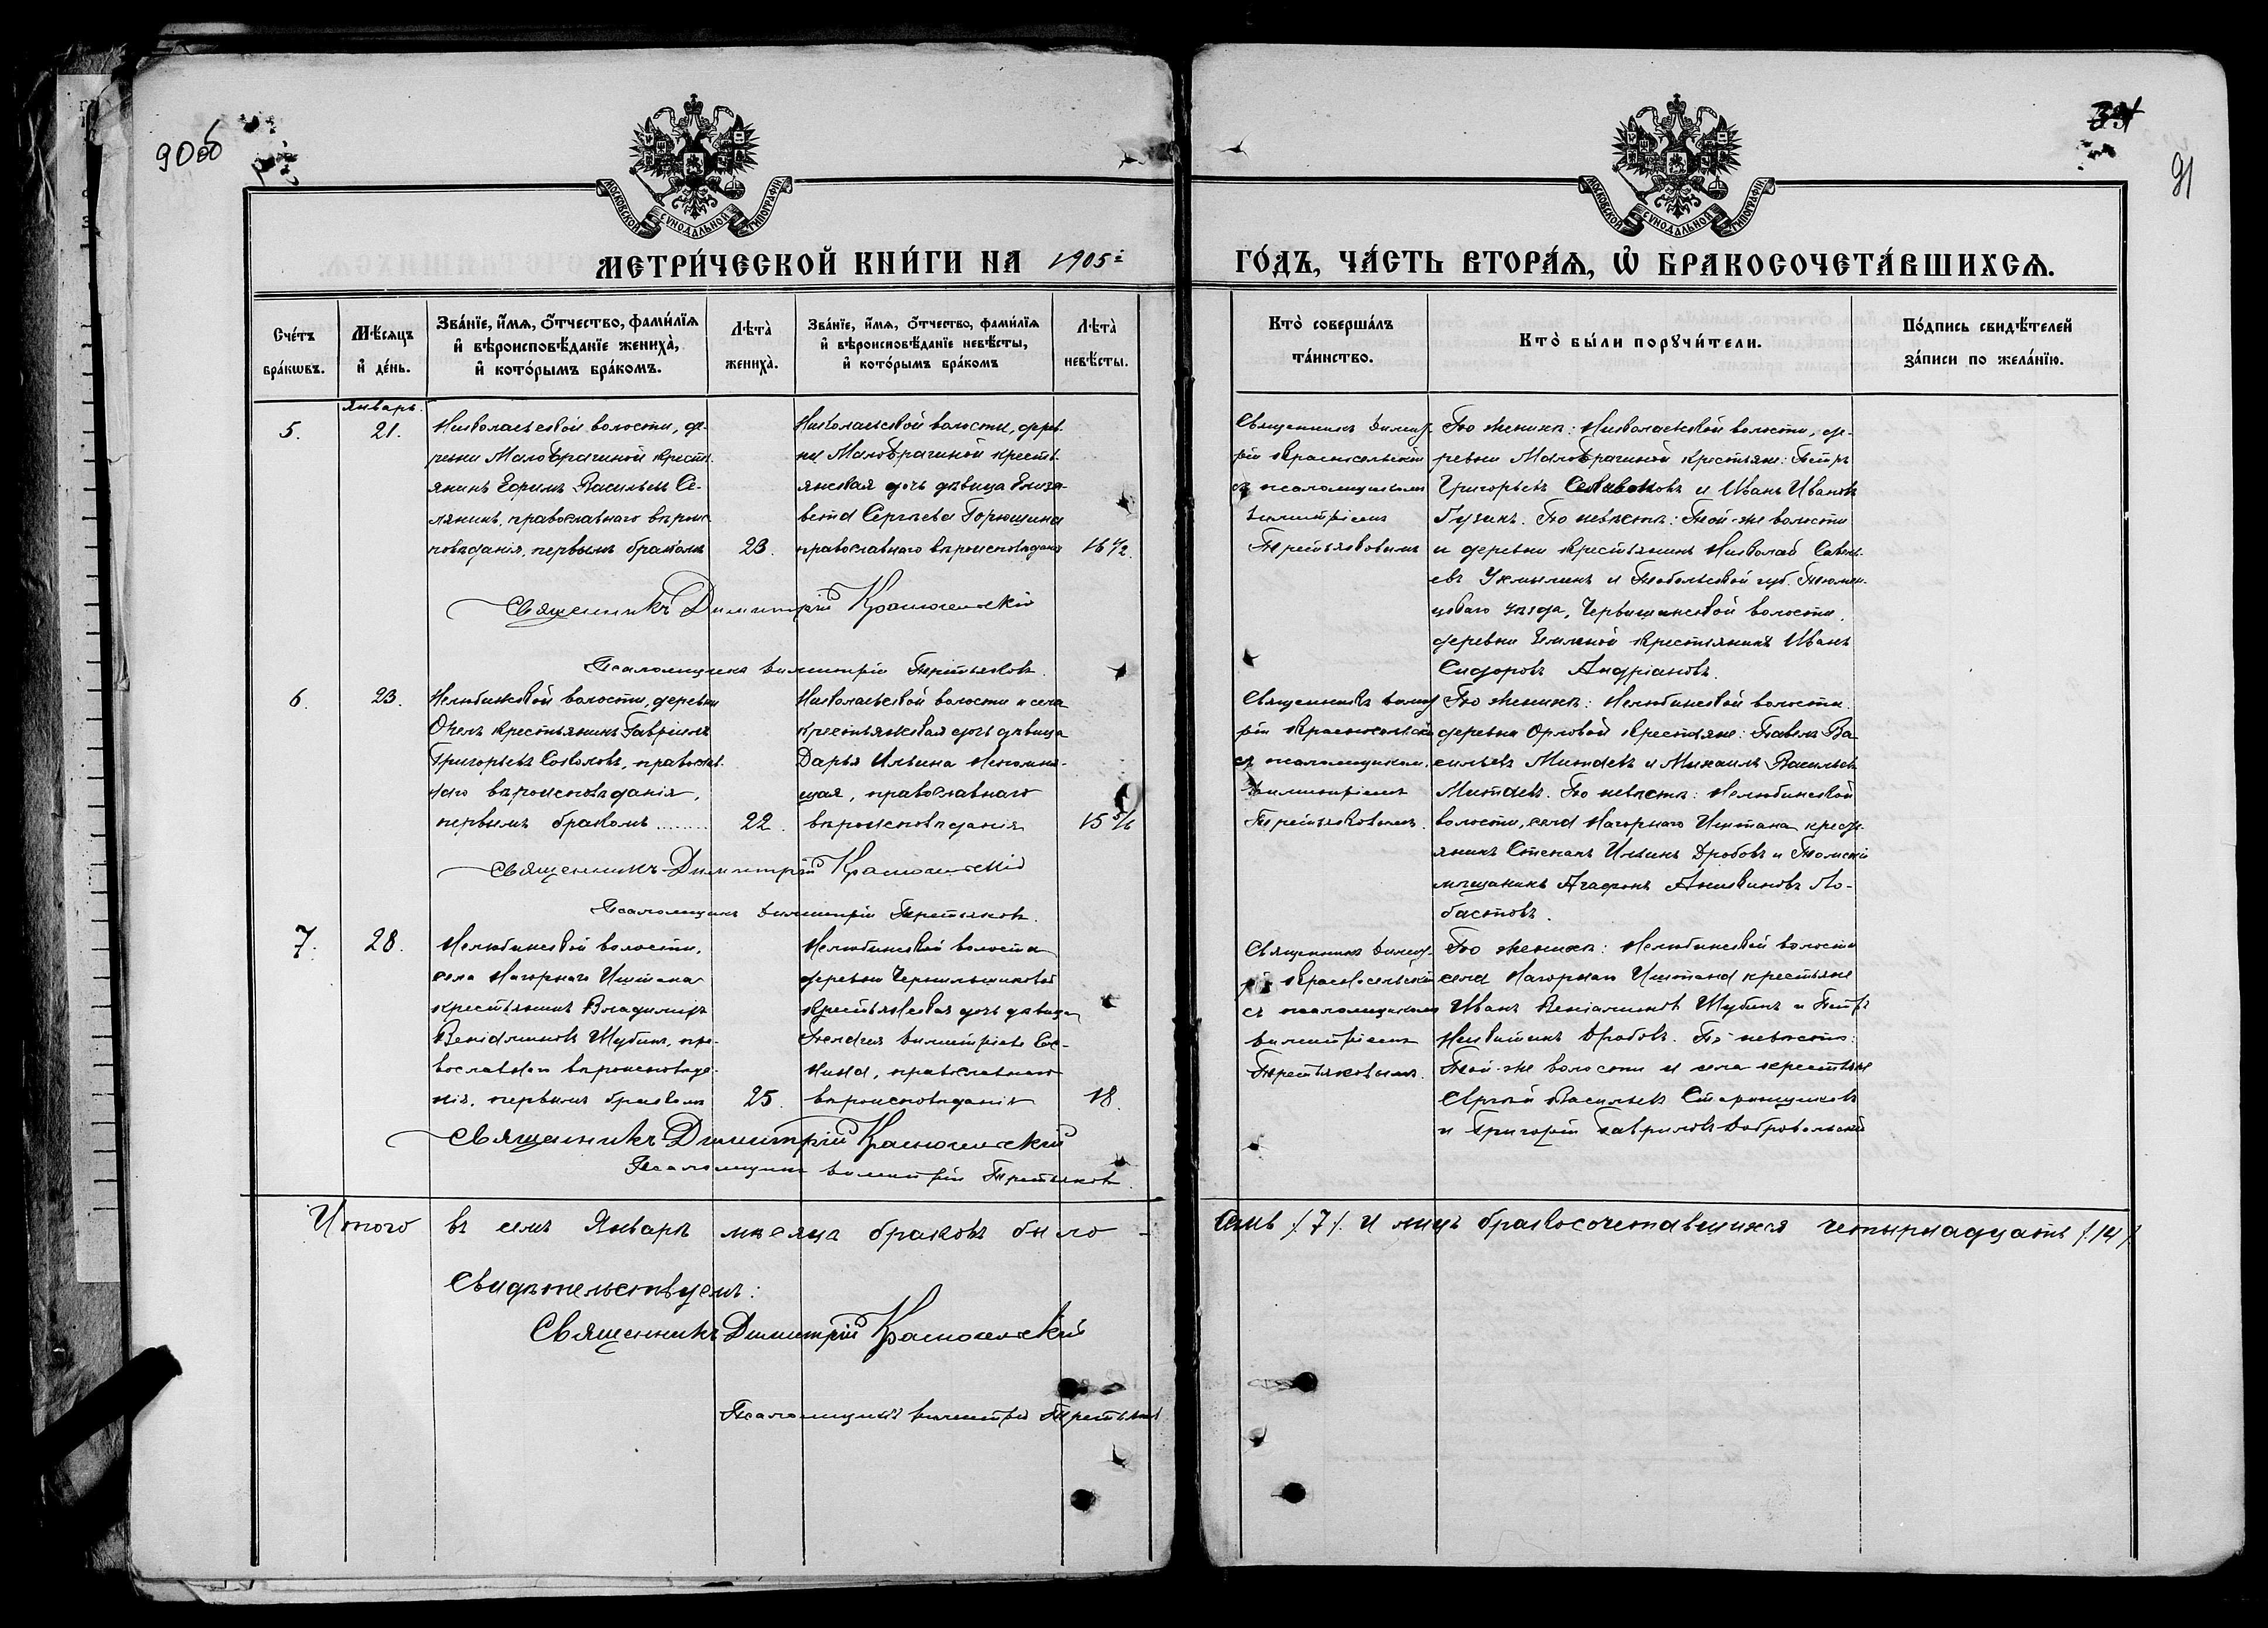 90об
34
91
МОСКОВСКОЙ СѴНОДАЛЬНОЙ ТИПОГРАФІИ
МОСКОВСКОЙ СѴНОДАЛЬНОЙ ТИПОГРАФІИ
МЕТРИ́ЧЕСКОЙ КНИ́ГИ НА 1905 г
ГО́ДЪ, ЧА́СТЬ ВТОРА́Ѧ, Ѡ҆ БРАКОСОЧЕТА́ВШИХСѦ.
Сче́тъ бра́кѡвъ.
Мѣ́сяцъ и҆ де́нь.
Зва́нїе, и҆́мѧ, ѻ҆́тчество, фами́лїѧ
и҆ вѣроисповѣ́данїе жениха̀,
и҆ кото́рымъ бра́комъ.
Лѣта̀ жениха̀.
Зва́нїе, и҆́мѧ, ѻ҆́тчество, фами́лїѧ
и҆ вѣроисповѣ́данїе невѣ́сты,
и҆ кото́рымъ бра́комъ
Лѣта̀ невѣ́сты.
Кто̀ соверша́лъ та́инство.
Кто̀ бы́ли порꙋчи́тели.
По́дпись свидѣ́телей за́писи по жела́нїю.
Январь.
5.
21.
Николаевской волости, де-
ревни Малобрагиной крестья-
янинъ Ефимъ Васильевъ Се-
лянинъ, православнаго вѣроис-
повѣданія, первымъ бракомъ
23.
Николаевской волости, дерев-
ни Малобрагиной кресть-
янская дочь дѣвица Елиза-
вета Сергѣева Горюшина
православнаго вѣроисповѣданія
16 1/2.
Священникъ Димит-
рій Красносельскій
съ псаломщикомъ
Димитріемъ
Третьяковымъ
По женихѣ: Николаевской волости, де-
ревни Малобрагиной крестьяне: Петръ
Григорьевъ Селивановъ и Иванъ Ивановъ
Гузикъ. По невѣстѣ: Той-же волости
и деревни крестьянинъ Николай Савель-
евъ Укмылинъ и Тобольской губ. Тюмен-
скаго уѣзда, Червишинской волости,
деревни крестьянинъ Иванъ
Сидоровъ Андріановъ.
Священникъ Димитрій Красносельскій
Псаломщикъ Димитрій Третьяковъ.
6.
23.
Нелюбинской волости, деревни
крестьянинъ Гавріилъ
Григорьевъ Соколовъ, православ-
наго вѣроисповѣданія,
первымъ бракомъ ........
22.
Николаевской волости и села
крестьянская дочь дѣвица
Дарья Ильина Непомня-
щая, православнаго
вѣроисповѣданія
15 5/6
Священникъ Димит-
рій Красносельскій
съ псаломщиком.
Димитріемъ
Третьяковымъ.
По женихѣ: Нелюбинской волости.
деревни Орловой крестьяне: Павелъ Ва-
сильевъ Митаевъ и Михаилъ Васильевъ
Митаевъ. По невѣстѣ: Нелюбинской
волости, села Нагорнаго Иштана кресть-
янинъ Степанъ Ильинъ Дробовъ и Томскій
мѣщанинъ Агафонъ Аникиновъ Ло-
бастовъ.
Священникъ Димитрій Красносельскій
Псаломщикъ Димитрій Третьяковъ.
7.
28.
Нелюбинской волости,
села Нагорнаго Иштана
крестьянинъ Владимиръ
Веніаминовъ Шубинъ, пра-
вославнаго вѣроисповѣда-
нія, первымъ бракомъ
25.
Нелюбинской волости
деревни Чернильщиковой
крестьянская дочь дѣвица
Димитріева
православнаго
вѣроисповѣданія
18.
Священникъ Димит-
рій Красносельскій
съ псаломщикомъ
Димитріемъ
Третьяковымъ.
По женихѣ: Нелюбинской волости
села Нагорнаго Иштана крестьяне
Иванъ Веніаминовъ Шубинъ и Петръ
Никитинъ Дробовъ. По невѣстѣ:
Той-же волости и села крестьяне
Сергѣй Васильевъ Старинщиковъ
и Григорій Гавриловъ Добровольскій
Священникъ Димитрій Красносельскій
Псаломщикъ Димитрій Третьяковъ.
Итого въ семъ Январѣ мѣсяцѣ браковъ было - семь /7/. И лицъ бракосочетавшихся четырнадцать /14/.
Свидѣтельствуемъ:
Священникъ Димитрій Красносельскій
Псаломщикъ Димитрій Третьяковъ